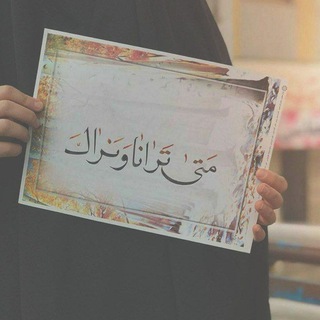 مَتىٰ تَرانٰا وَنَراٰكَ